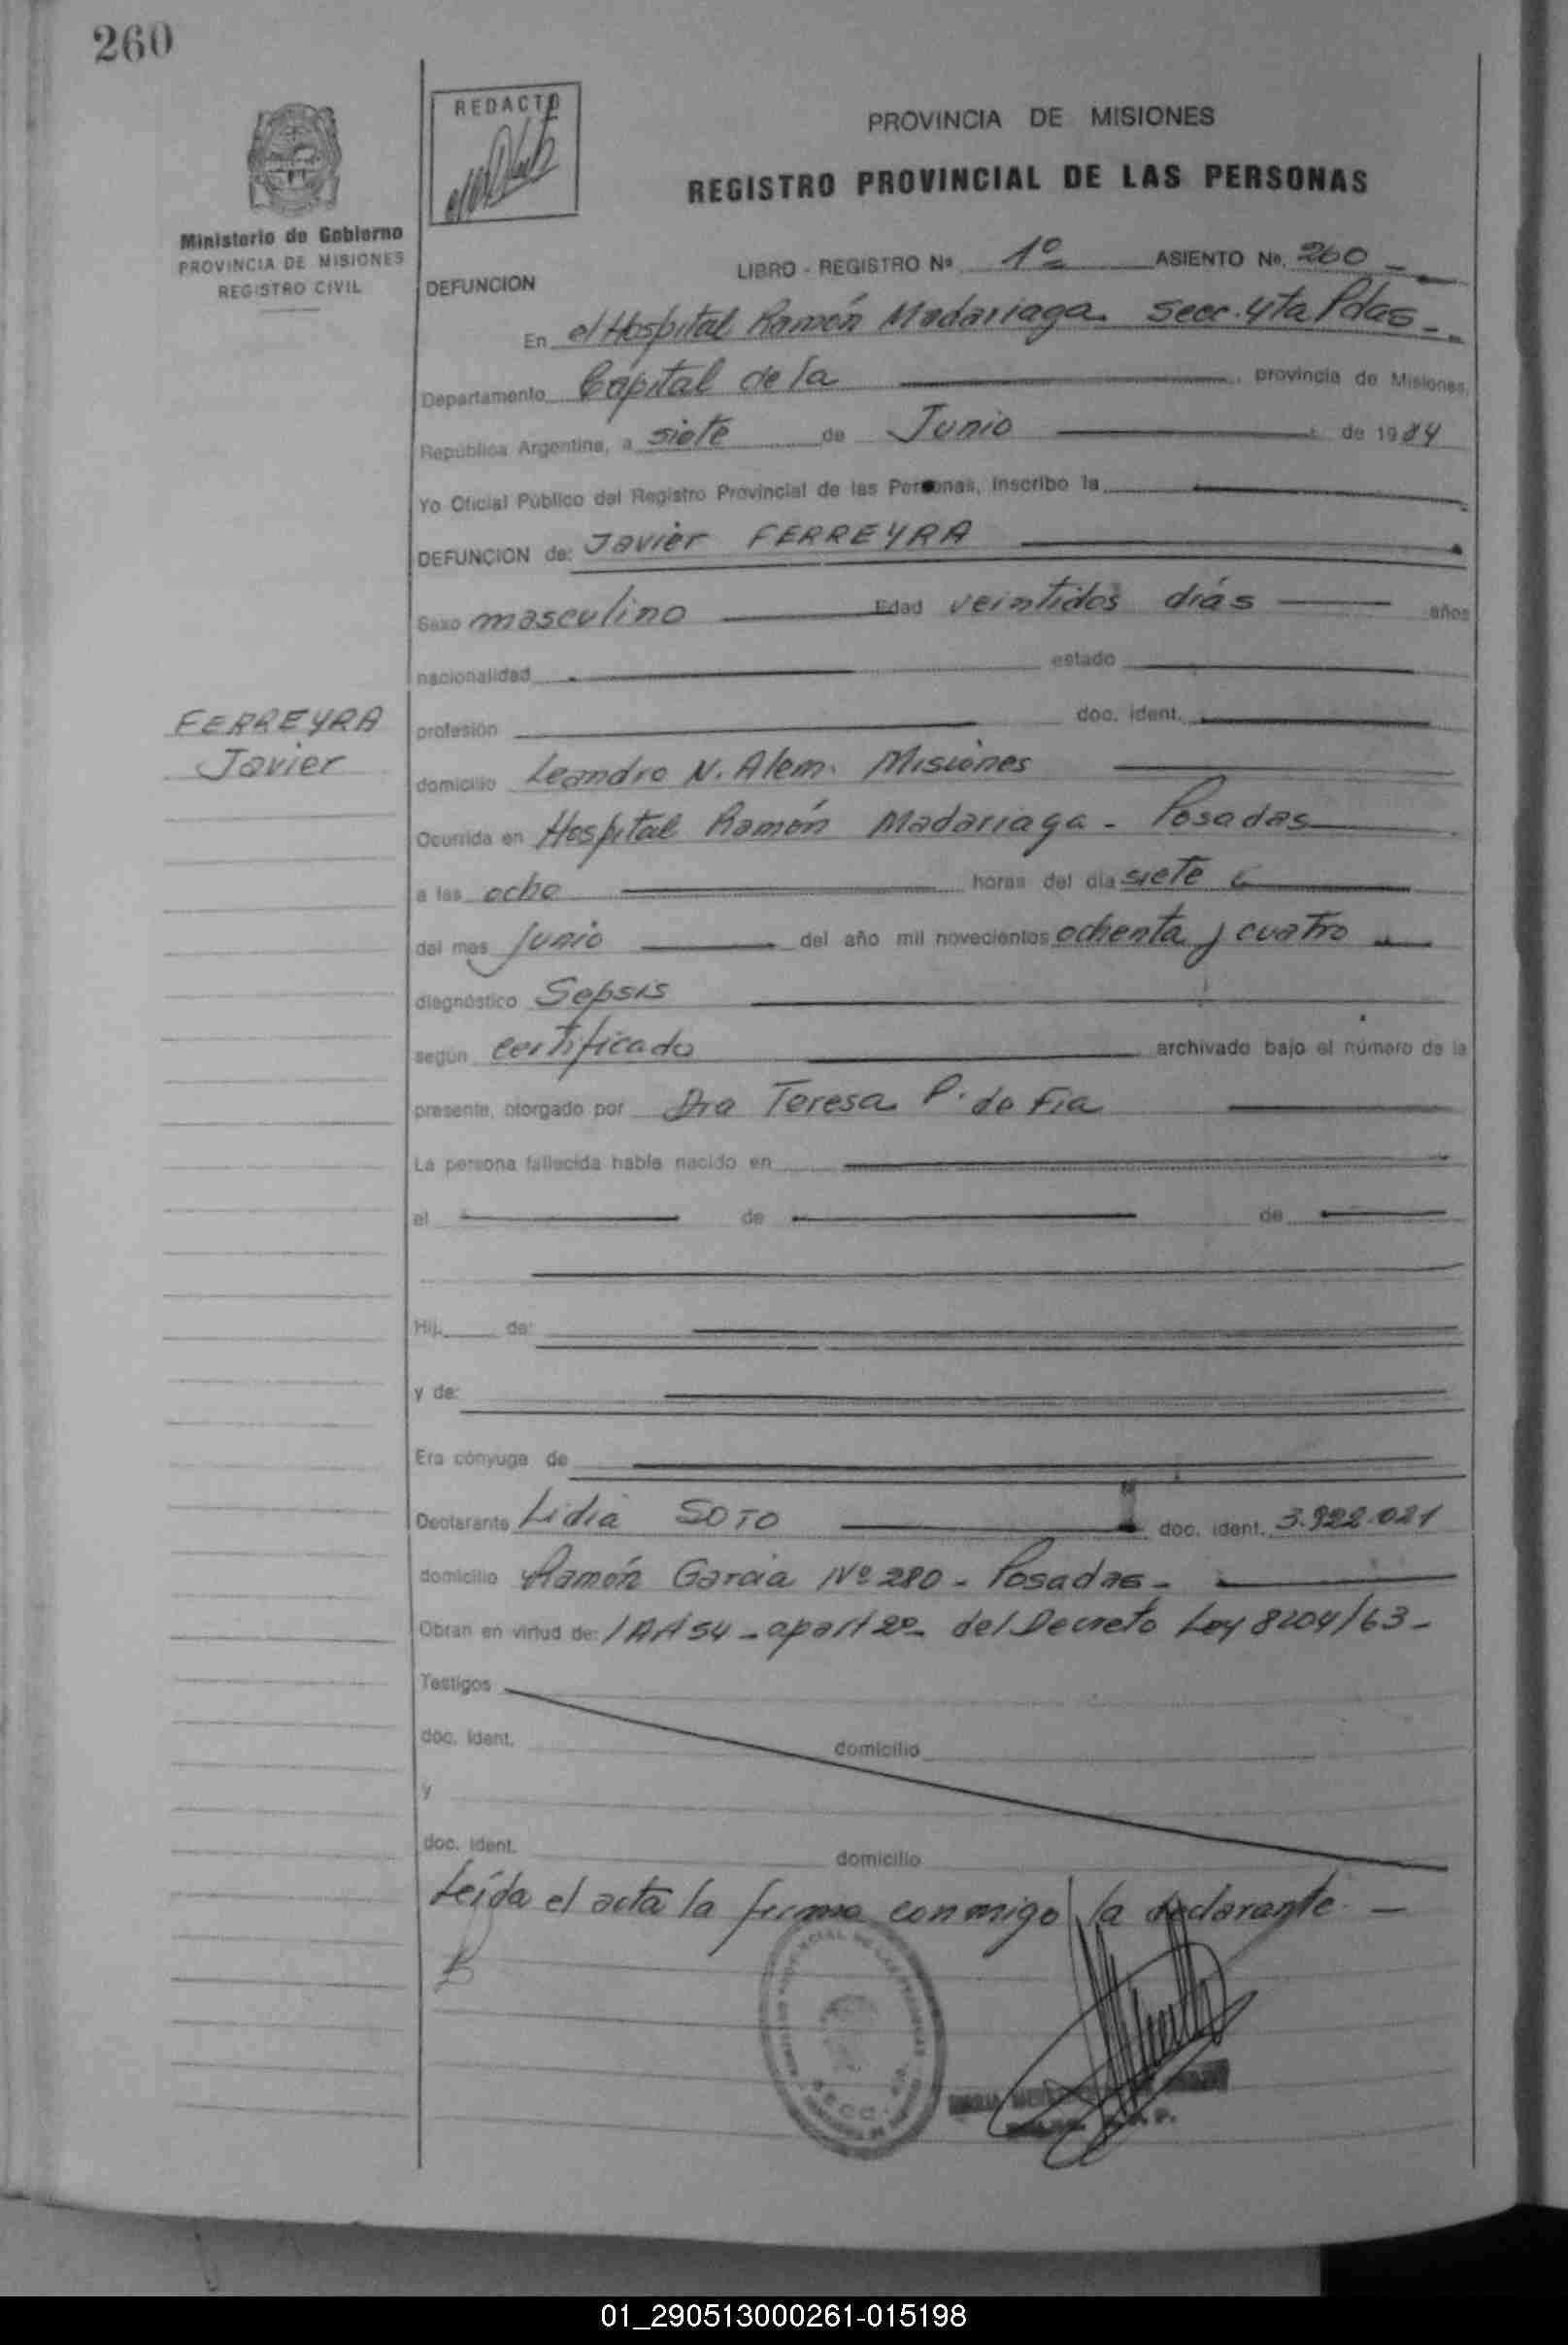 260
REDACTO
PROVINCIA DE MISIONES
REGISTRO PROVINCIAL DE LAS PERSONAS
Ministerio de Gobierno
PROVINCIA DE MISIONES
REGISTRO CIVIL
LIBRO - REGISTRO Nº 1º ASIENTO Nº. 260 -
DEFUNCION
En el Hospital Ramón Madariaga. Secc. 4ta Pdas -
Departamento Capital de la provincia de Misiones,
República Argentina, a siete de Junio de 1984
Yo Oficial Público del Registro Provincial de las Personas, inscribo la
DEFUNCION de: Javier FERREYRA
Sexo masculino Edad veintidos días años
nacionalidad estado
FERREYRA
Javier
profesión doc. ident.
domicilio Leandro N. Alem. Misiones
Ocurrida en Hospital Ramón Madariaga - Posadas
a las ocho horas del día siete
del mes Junio del año mil novecientos ochenta y cuatro
diagnóstico Sepsis
según certificado archivado bajo el número de la
presente, otorgado por Dra Teresa P. de Fia
La persona fallecida había nacido en
el de de
Hij de:
y de:
Era cónyuge de
Declarante Lidia SOTO doc. ident. 3.922.021
domicilio Ramón Garcia Nº 280 - Posadas -
Obran en virtud de: Art 54 - apart 2º del Decreto Ley 8204/63 -
Testigos
doc. ident. domicilio
y
doc. ident. domicilio
Leída el acta la firma conmigo la declarante -
01_290513000261-015198